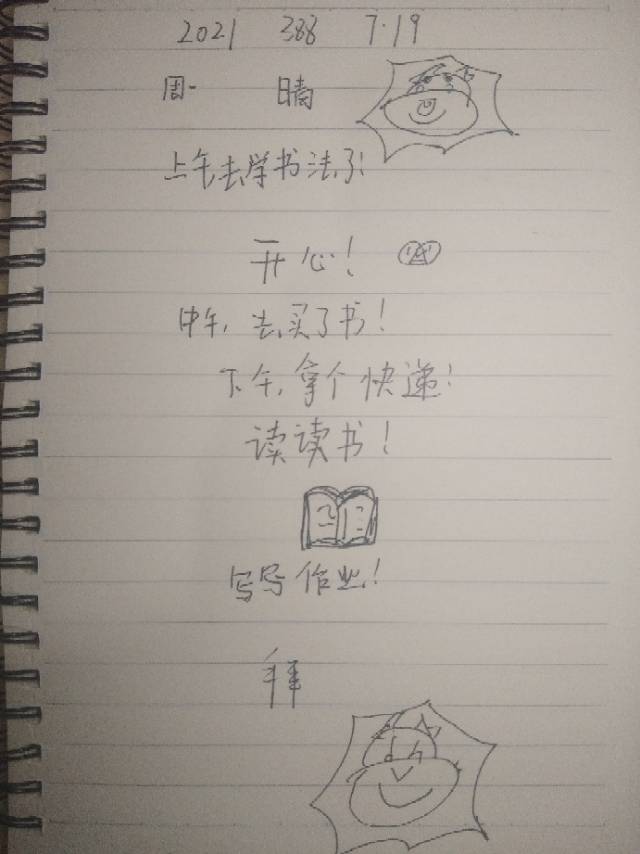 2021 388 7.19
周一 晴
上午去学书法了!
开心!
中午,去买了书!
下午,拿个快递!
读读书!
写写作业!
拜